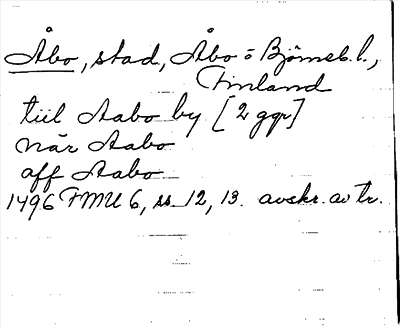 Åbo, stad, Åbo = Björneb. l.,
Finland
tiil Aabo by [2 ggr]
när Aabo
aff Aabo
1496 FMU 6, ss. 12, 13. avskr. av tr.